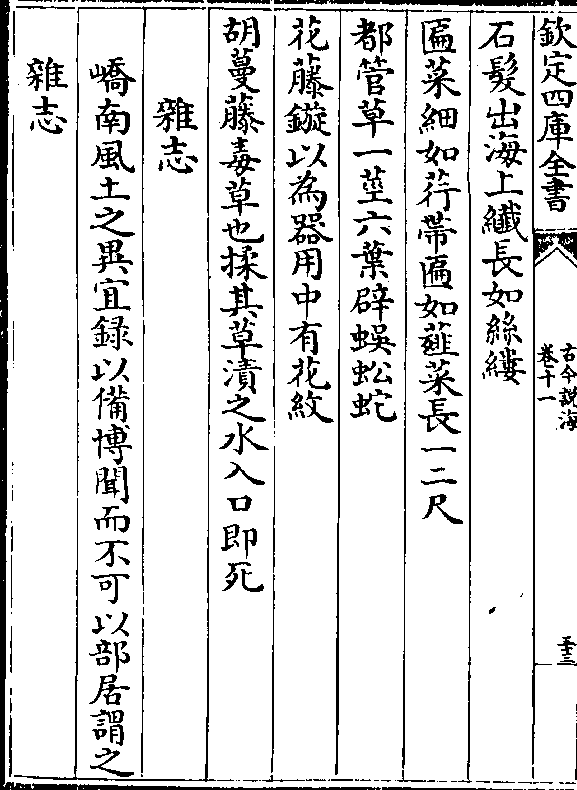 欽定四庫全書
古今說海
卷十一
三十三
石髮出海上纖長如絲縷
匾菜細如荇帶匾如薤菜長一二尺
都管草一莖六葉辟蜈蚣蛇
花藤鏇以為器用中有花紋
胡蔓藤毒草也揉其草漬之水入口即死
雜志
嶠南風土之異宜録以備博聞而不可以部居謂之
雜志